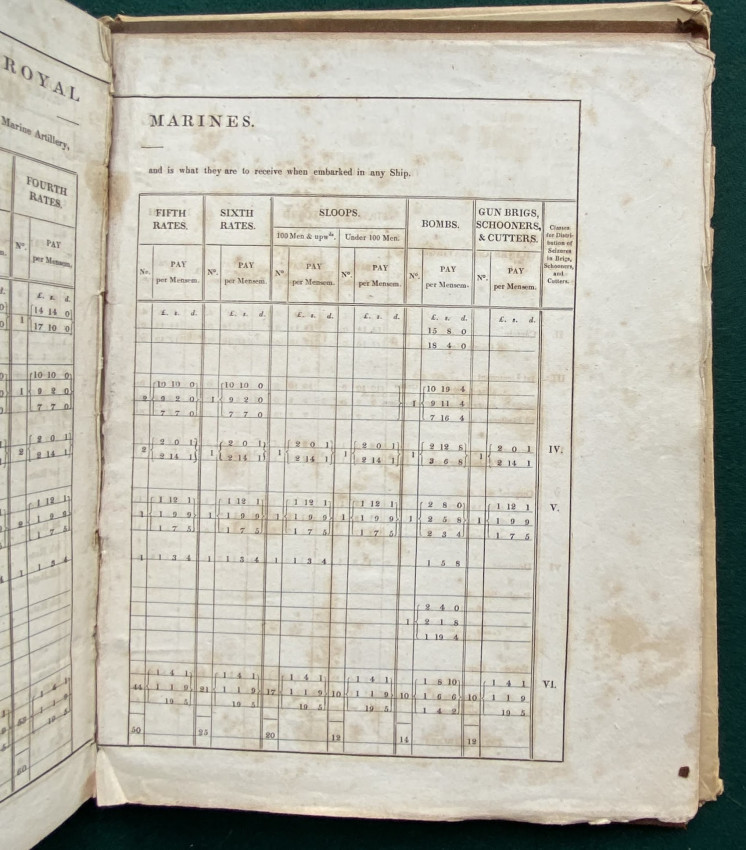 ROYAL
Marine Artillery,
FOURTH
RATES.
Nº. PAY
per Mensem.
£. s. d.
14 14 0
1 17 10 0
10 10 0
1 9 2 0
7 7 0
2 0 1
2 2 14 1
1 12 1
1 9 9
1 7 5
1 1 3 4
MARINES.
and is what they are to receive when embarked in any Ship.
FIFTH RATES. SIXTH RATES. SLOOPS. BOMBS. GUN BRIGS, SCHOONERS, & CUTTERS. Classes for Distribution of Seizures in Brigs, Schooners, and Cutters.
100 Men & upwds. Under 100 Men.
No. PAY per Mensem. Nº. PAY per Mensem. Nº. PAY per Mensem. Nº. PAY per Mensem. Nº. PAY per Mensem. Nº. PAY per Mensem.
£. s. d. £. s. d. £. s. d. £. s. d. £. s. d. £. s. d.
15 8 0
18 4 0
10 10 0 10 10 0 10 19 4
2 9 2 0 1 9 2 0 1 9 11 4
7 7 0 7 7 0 7 16 4
2 0 1 2 0 1 2 0 1 2 0 1 2 12 8 2 0 1 IV.
2 2 14 1 1 2 14 1 1 2 14 1 1 2 14 1 1 3 6 8 1 2 14 1
1 12 1 1 12 1 1 12 1 1 12 1 2 8 0 1 12 1 V.
1 1 9 9 1 1 9 9 1 1 9 9 1 1 9 9 1 2 5 8 1 1 9 9
1 7 5 1 7 5 1 7 5 1 7 5 2 3 4 1 7 5
1 1 3 4 1 1 3 4 1 1 3 4 1 5 8
2 4 0
1 2 1 8
1 19 4
1 4 1 1 4 1 1 4 1 1 4 1 1 8 10 1 4 1 VI.
44 1 1 9 21 1 1 9 17 1 1 9 10 1 1 9 10 1 6 6 10 1 1 9
19 5 19 5 19 5 19 5 1 4 2 19 5
50 25 20 12 14 12